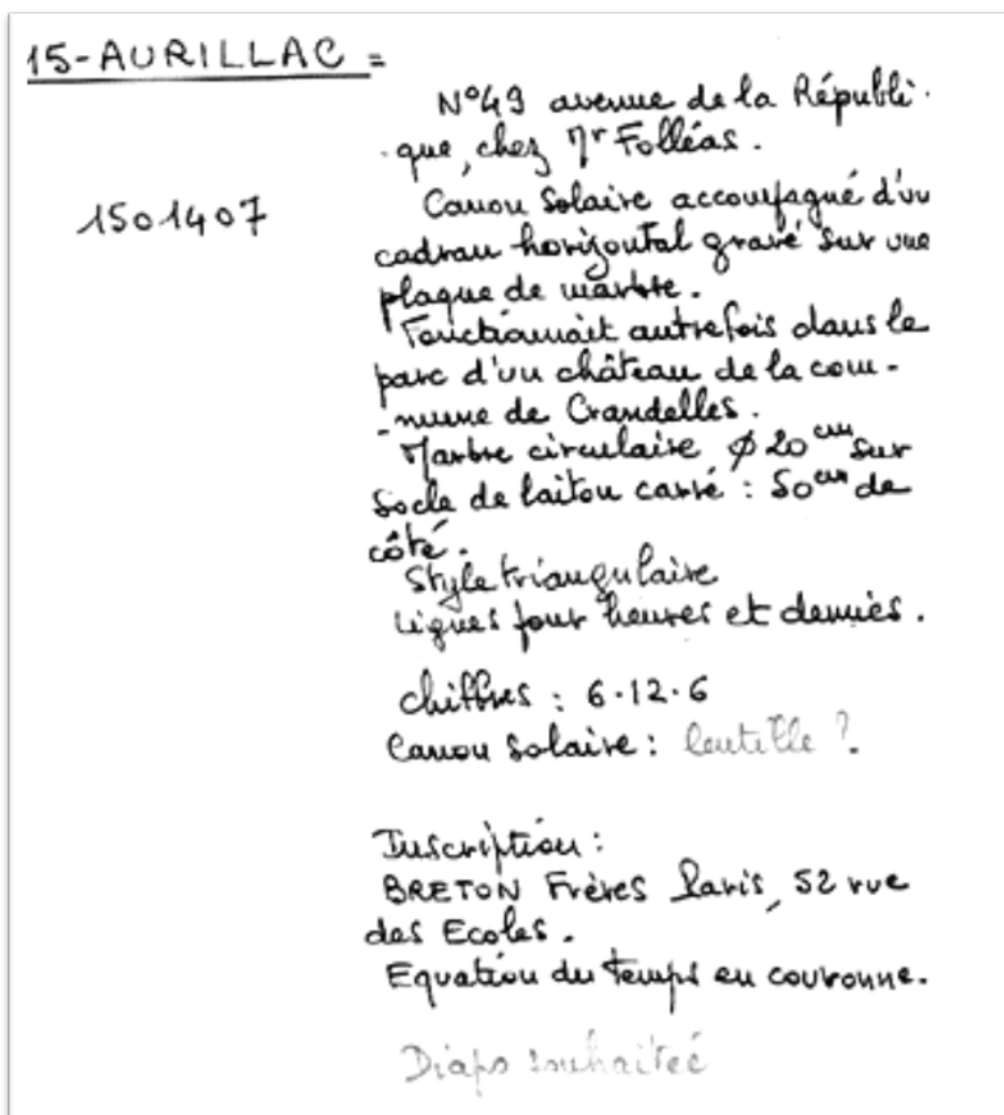 15-AURILLAC =
N°49 avenue de la Républi-
-que, chez Mr Folléas.
1501407
Canon Solaire accompagné d'un
cadran horizontal gravé sur une
plaque de marbre.
Fonctionnait autrefois dans le
parc d'un château de la com-
-mune de Crandelles.
Marbre circulaire ∅ 20 cm sur
socle de laiton carré : 50 cm de
côté.
Style triangulaire
Lignes pour heures et demies.
chiffres : 6.12.6
Canon Solaire : lentille ?
Inscription :
BRETON Frères Paris, 52 rue
des Ecoles.
Equation du temps en couronne.
Diapo souhaitée